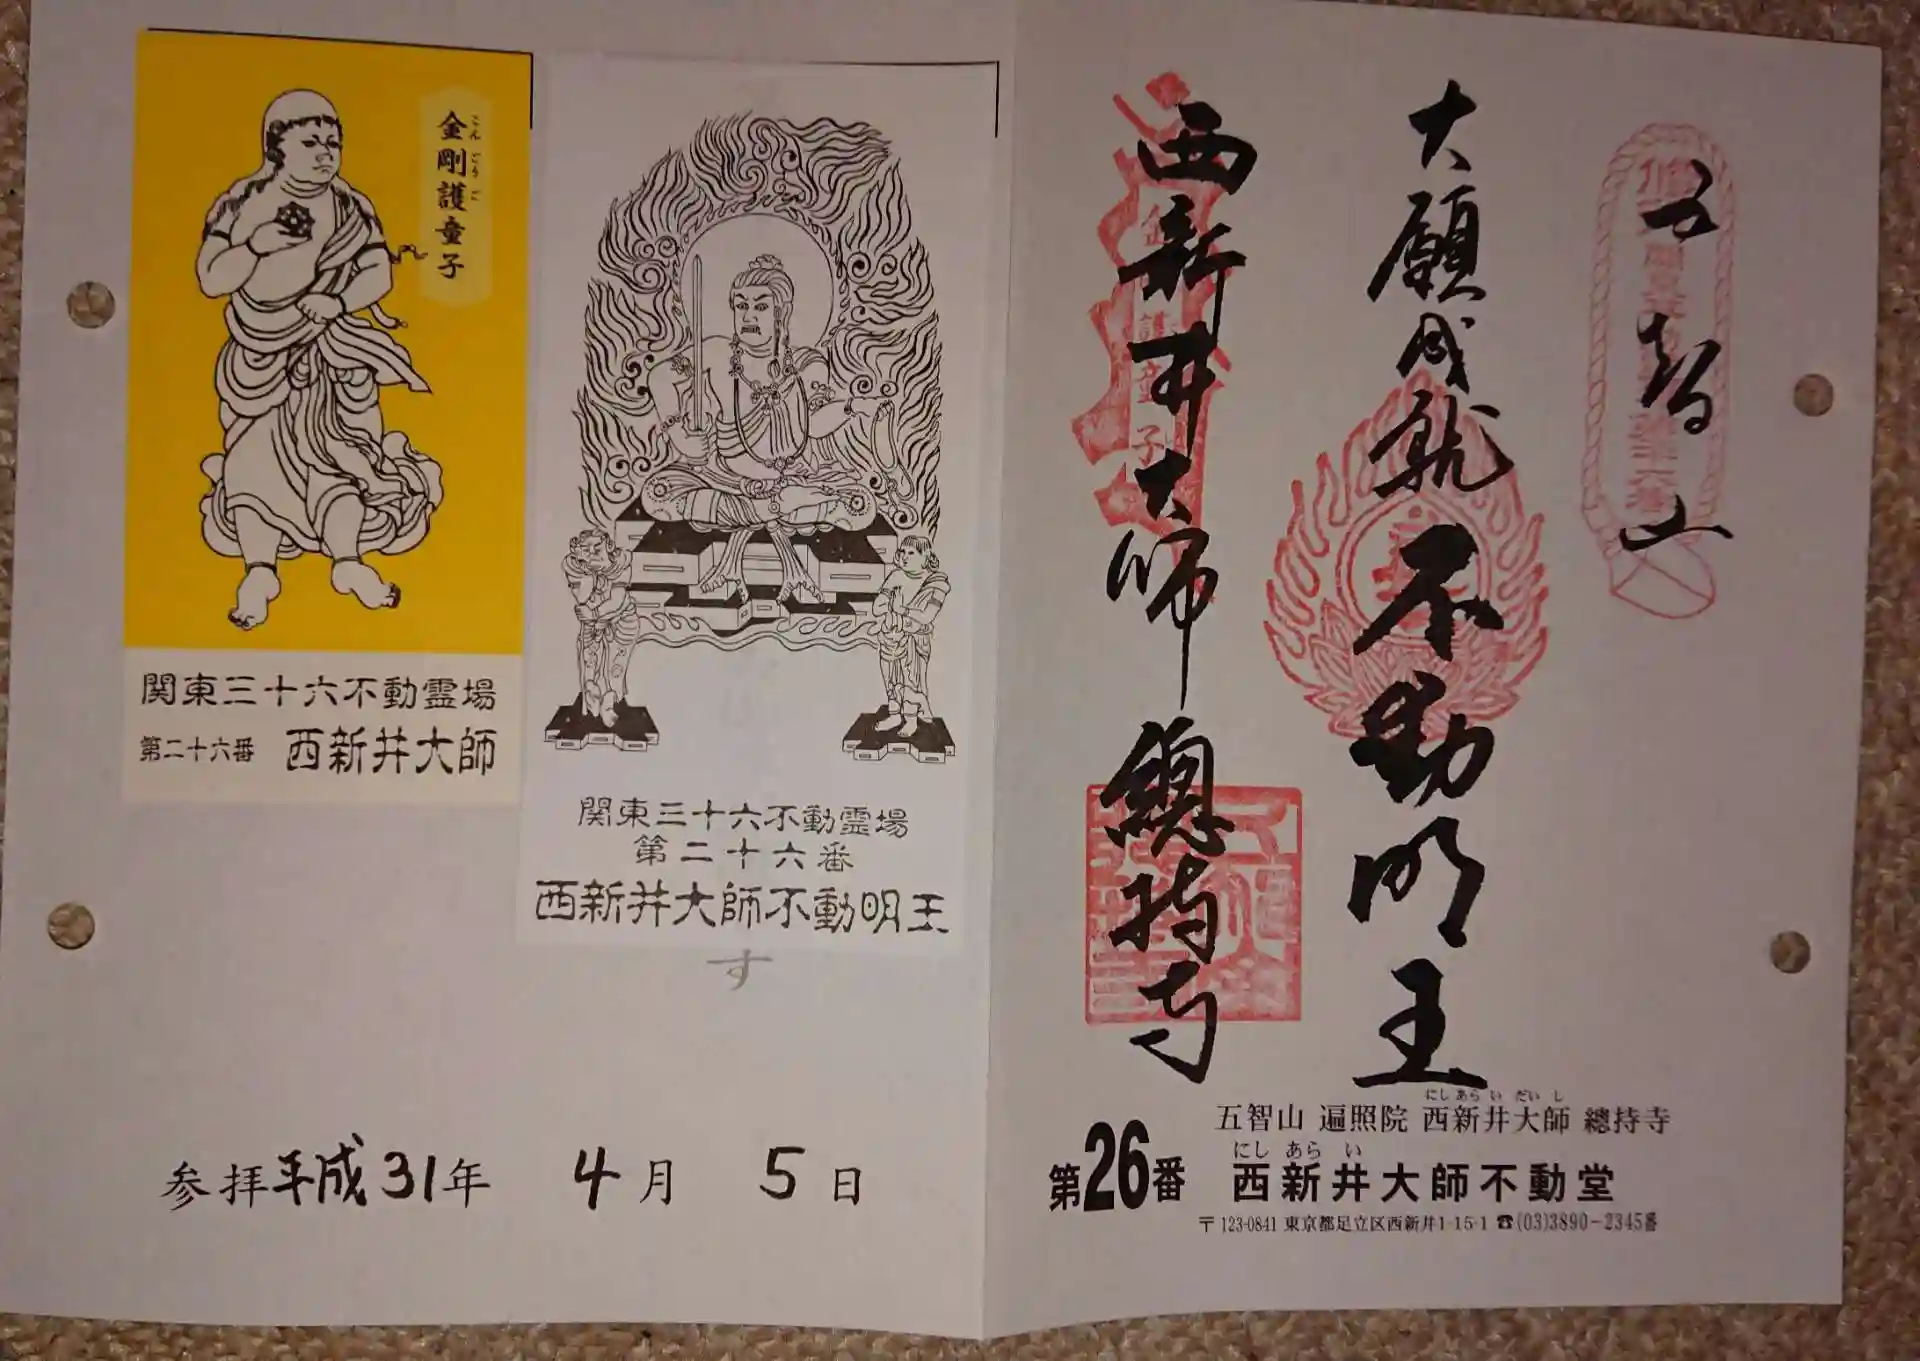 五智山
大願成就
不動明王
西新井大師
總持寺
金剛護童子
こんごうご
関東三十六不動霊場
第二十六番 西新井大師
関東三十六不動霊場
第二十六番
西新井大師不動明王
す
参拝平成31年 4月 5日
にしあらいだいし
五智山 遍照院 西新井大師 總持寺
にしあらい
第26番 西新井大師不動堂
〒123-0841 東京都足立区西新井1-15-1 ☎(03)3890-2345番